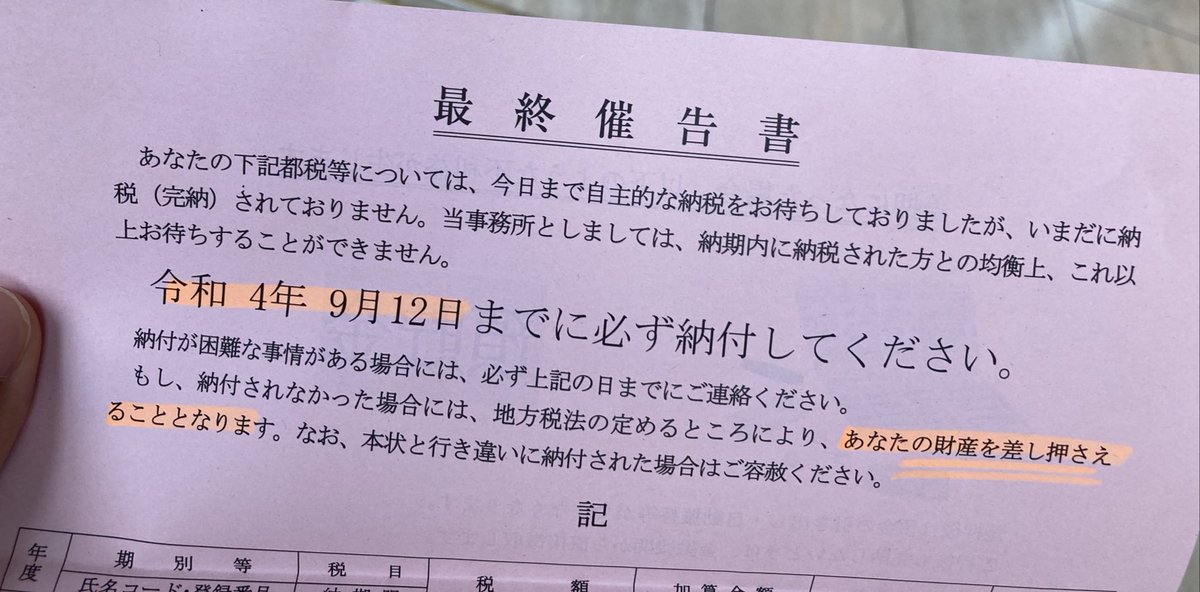 最終催告書
あなたの下記都税等については、今日まで自主的な納税をお待ちしておりましたが、いまだに納
税（完納）されておりません。当事務所としましては、納期内に納税された方との均衡上、これ以
上お待ちすることができません。
令和 4年 9月12日までに必ず納付してください。
納付が困難な事情がある場合には、必ず上記の日までにご連絡ください。
もし、納付されなかった場合には、地方税法の定めるところにより、あなたの財産を差し押さえ
ることとなります。なお、本状と行き違いに納付された場合はご容赦ください。
記
年度 期別等 税目 税額 加算金額
氏名コード・登録番号 納期限